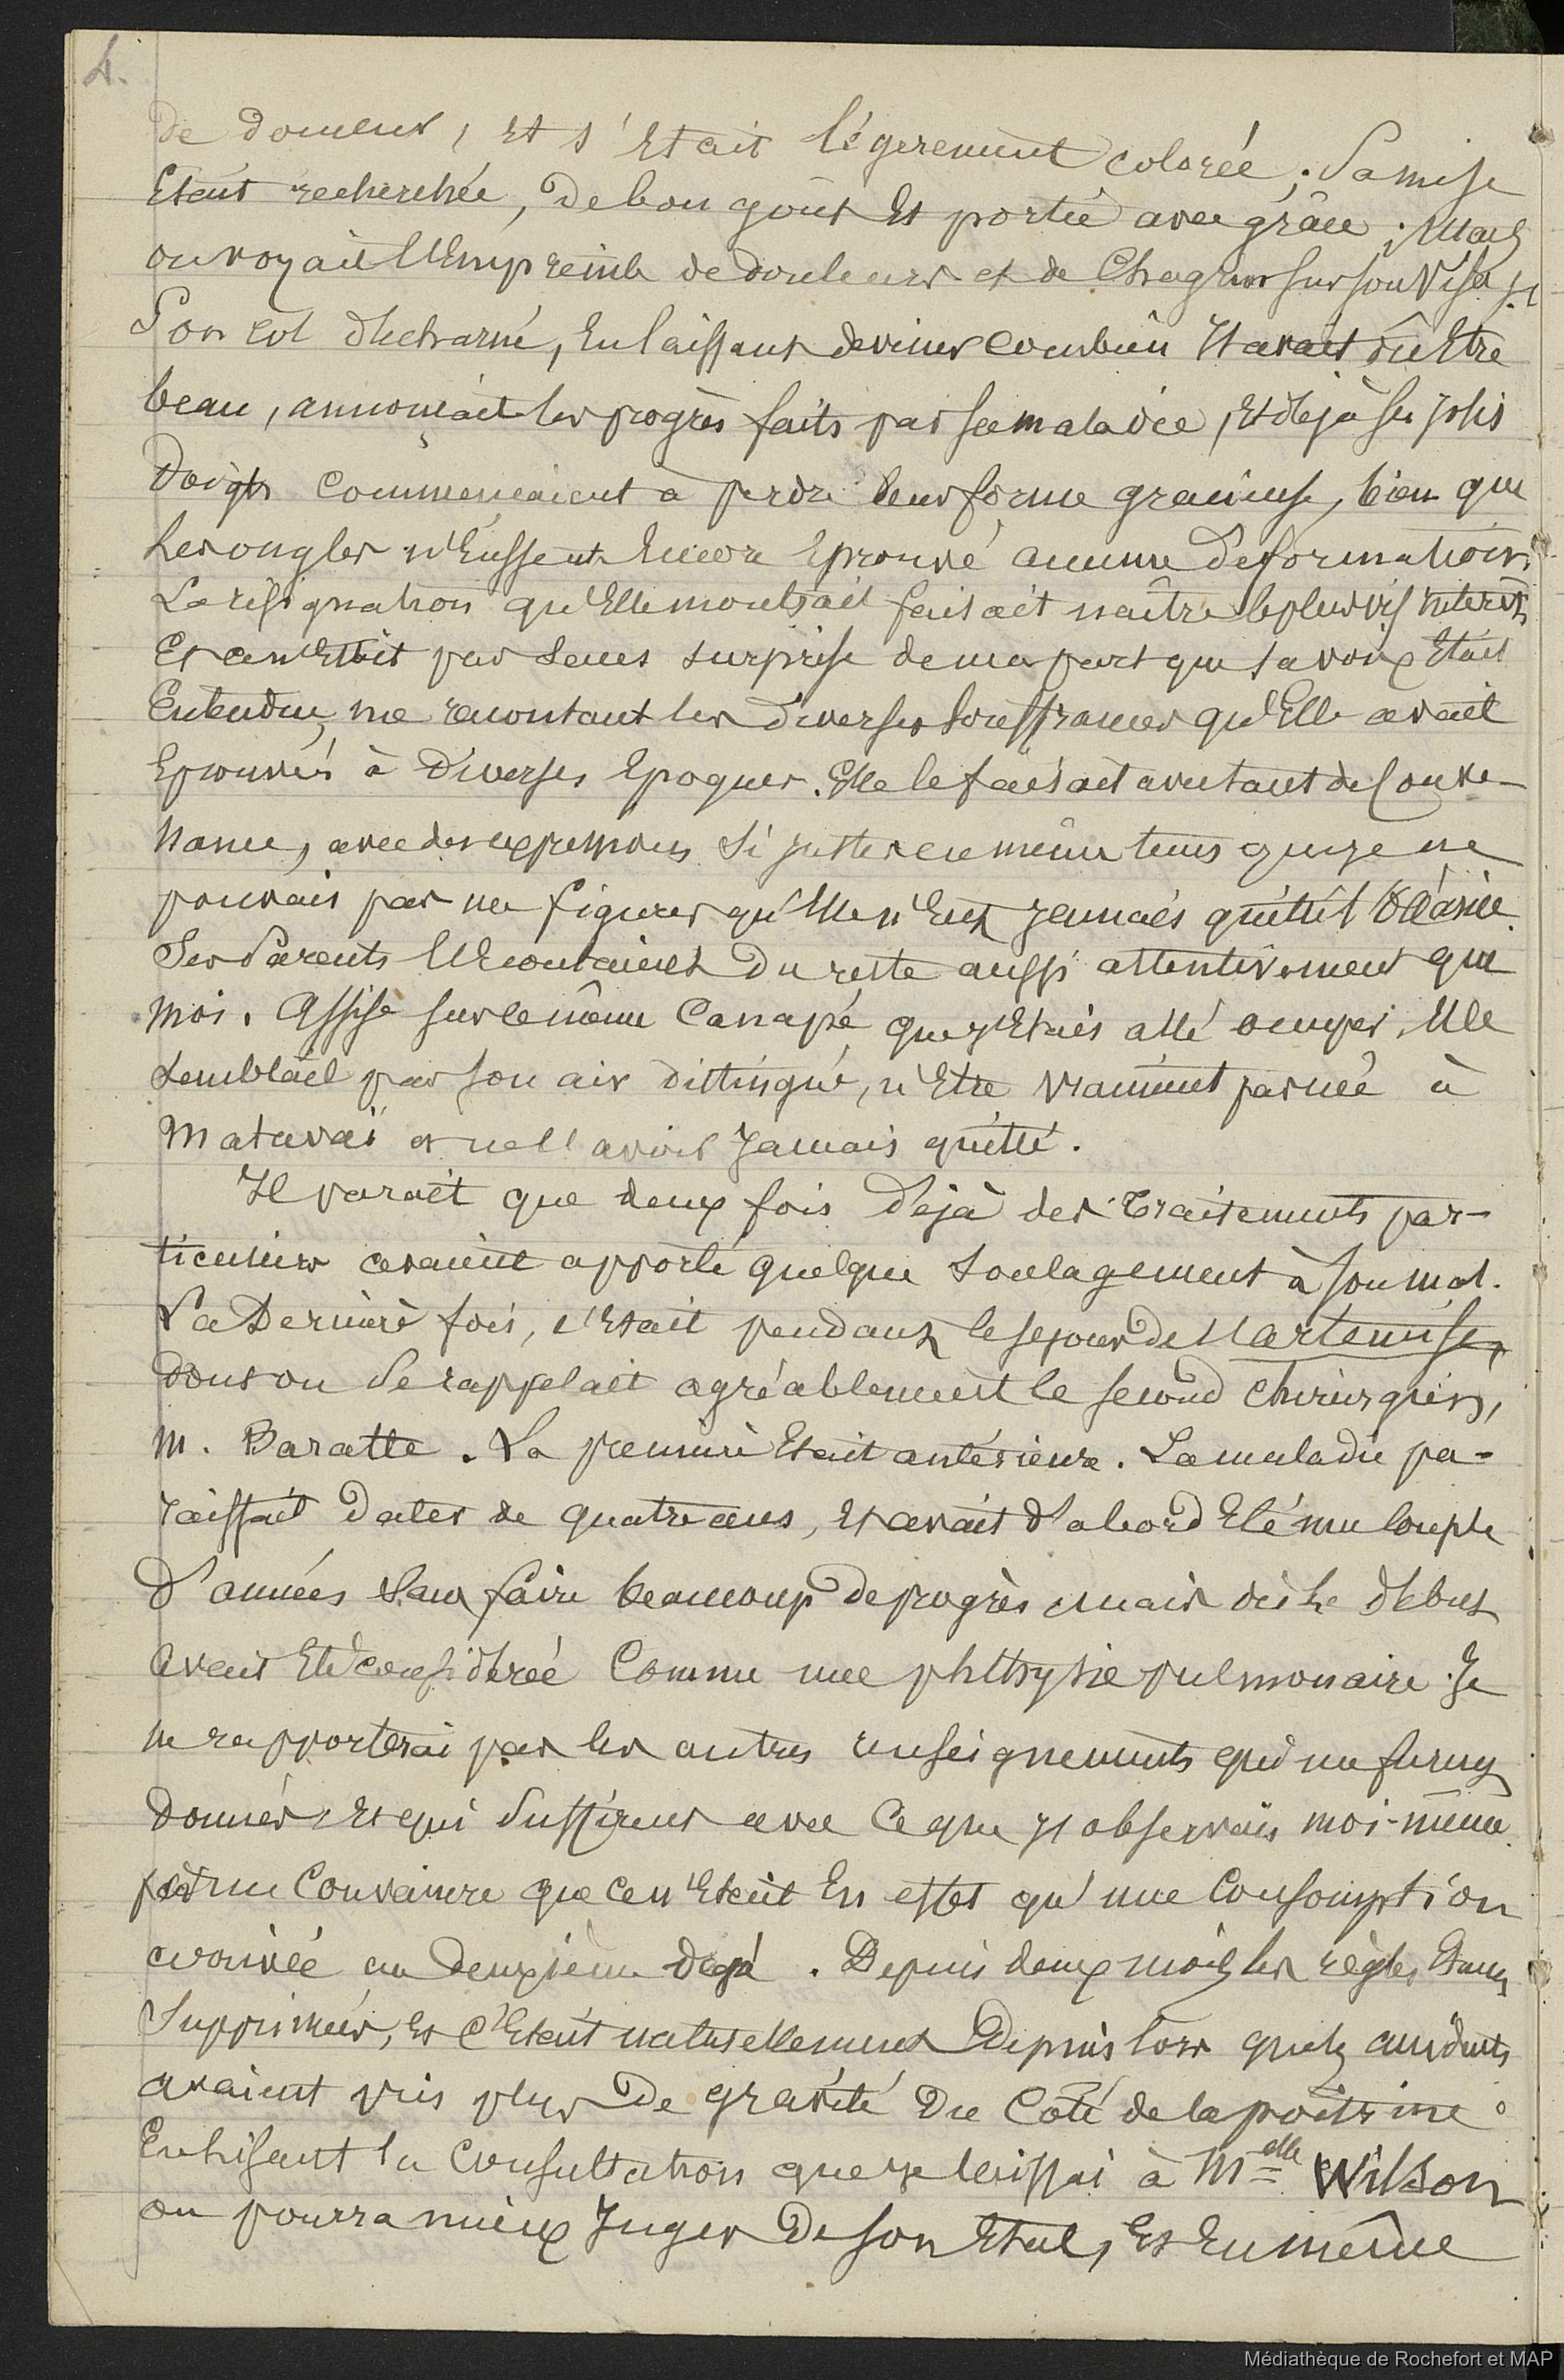 4.
de douceur, et s'était légèrement colorée ; Sa mise
était recherchée, de bon goût et portée avec grâce ; Mais
on voyait l'empreinte de douleurs et de chagrins sur son visage
Son col décharné, en laissant deviner combien il avait dû être
beau, annonçait les progrès faits par sa maladie, et déjà ses jolis
doigts commençaient à perdre leur forme gracieuse, bien que
les ongles n'eussent encore éprouvé aucune déformation.
La résignation qu'elle montrait faisait naître le plus vif intérêt,
Et ce n'était pas sans surprise de ma part que sa voix était
entendue, me racontant les diverses souffrances qu'elle avait
éprouvées à diverses époques. Elle le faisait avec tant de conve-
nance, avec des expressions si justes en même tems que je ne
pouvais pas me figurer qu'elle n'eut jamais quitté l'Océanie.
Ses Parents l'écoutaient du reste aussi attentivement que
moi. Assise sur le même canapé que j'étais allé occuper, elle
semblait par son air distingué, n'être vraiment pas née à
Matavaï et ne l'avoir jamais quitté.
Il paraît que deux fois déjà des traitements par-
ticuliers avaient apporté quelque soulagement à son mal.
La dernière fois, c'était pendant le séjour de l'artémise,
dont on se rappelait agréablement le second chirurgien,
M. Baratte. La première était antérieure. La maladie pa-
raissait dater de quatre ans, et avait d'abord été une couple
d'années sans faire beaucoup de progrès mais dès le début
avait été considérée comme une phthysie pulmonaire. Je
ne rapporterai pas les autres renseignements qui me furent
donnés et qui suffirent avec ce que j'observais moi-même
pour me convaincre que ce n'était en effet qu'une consomption
arrivée au deuxième degré. Depuis deux mois les règles étaient
supprimées, et c'était naturellement depuis lors que les accidents
avaient pris plus de gravité du côté de la poitrine.
En lisant la consultation que je laissai à M<sup>elle</sup> Wilson
on pourra mieux juger de son état, et en même
Médiathèque de Rochefort et MAP